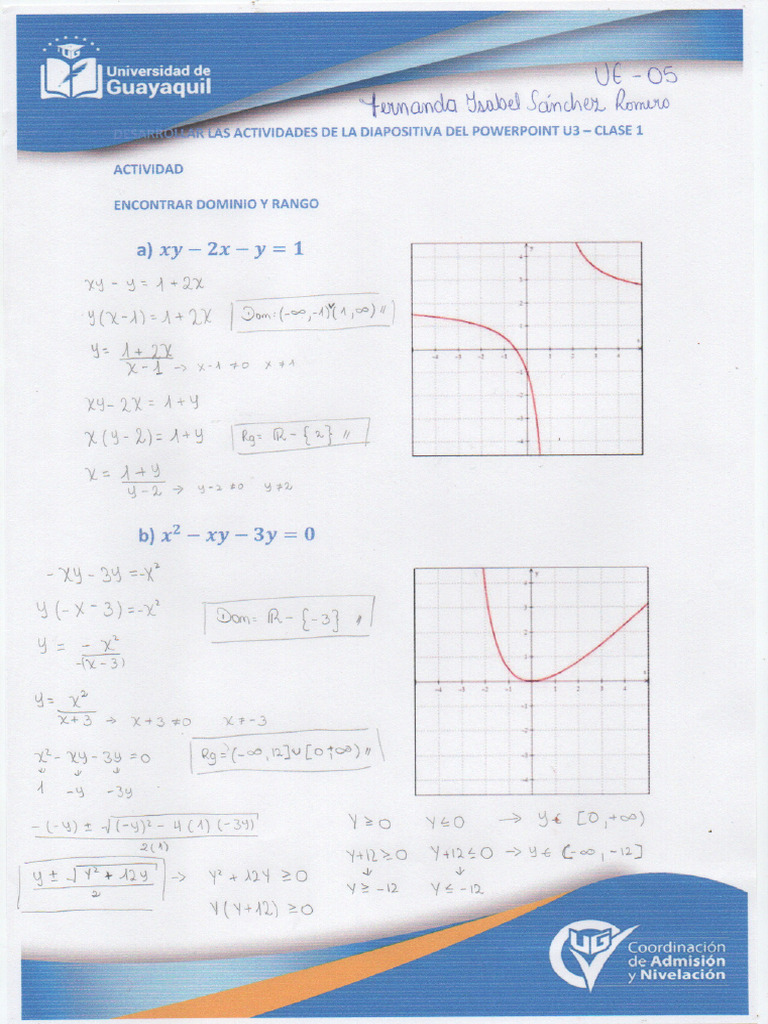 Universidad de
Guayaquil
UE - 05
Fernanda Isabel Sánchez Romero
DESARROLLAR LAS ACTIVIDADES DE LA DIAPOSITIVA DEL POWERPOINT U3 – CLASE 1
ACTIVIDAD
ENCONTRAR DOMINIO Y RANGO
a) xy − 2x − y = 1
xy - y = 1 + 2x
y(x-1) = 1 + 2x
Dom: (-∞, -1) ∪ (1, ∞) //
y = (1 + 2x)/(x - 1) → x-1 ≠ 0 x ≠ 1
xy - 2x = 1 + y
x(y-2) = 1 + y
Rg = ℝ - {2} //
x = (1 + y)/(y - 2) → y-2 ≠ 0 y ≠ 2
b) x² − xy − 3y = 0
-xy - 3y = -x²
y(-x - 3) = -x²
Dom = ℝ - {-3} //
y = -x²/-(x-3)
y = x²/(x+3) → x + 3 ≠ 0 x ≠ -3
Rg = (-∞, 12] ∪ [0, +∞) //
x² - xy - 3y = 0
↓ ↓ ↓
1 -y -3y
(-(-y) ± √((-y)² - 4(1)(-3y)))/2(1)
(y ± √(y² + 12y))/2 → y² + 12y ≥ 0
y(y+12) ≥ 0
y ≥ 0 y ≤ 0 → y ∈ [0, +∞)
y+12 ≥ 0 y+12 ≤ 0 → y ∈ (-∞, -12]
↓ ↓
y ≥ -12 y ≤ -12
UG
Coordinación
de Admisión
y Nivelación